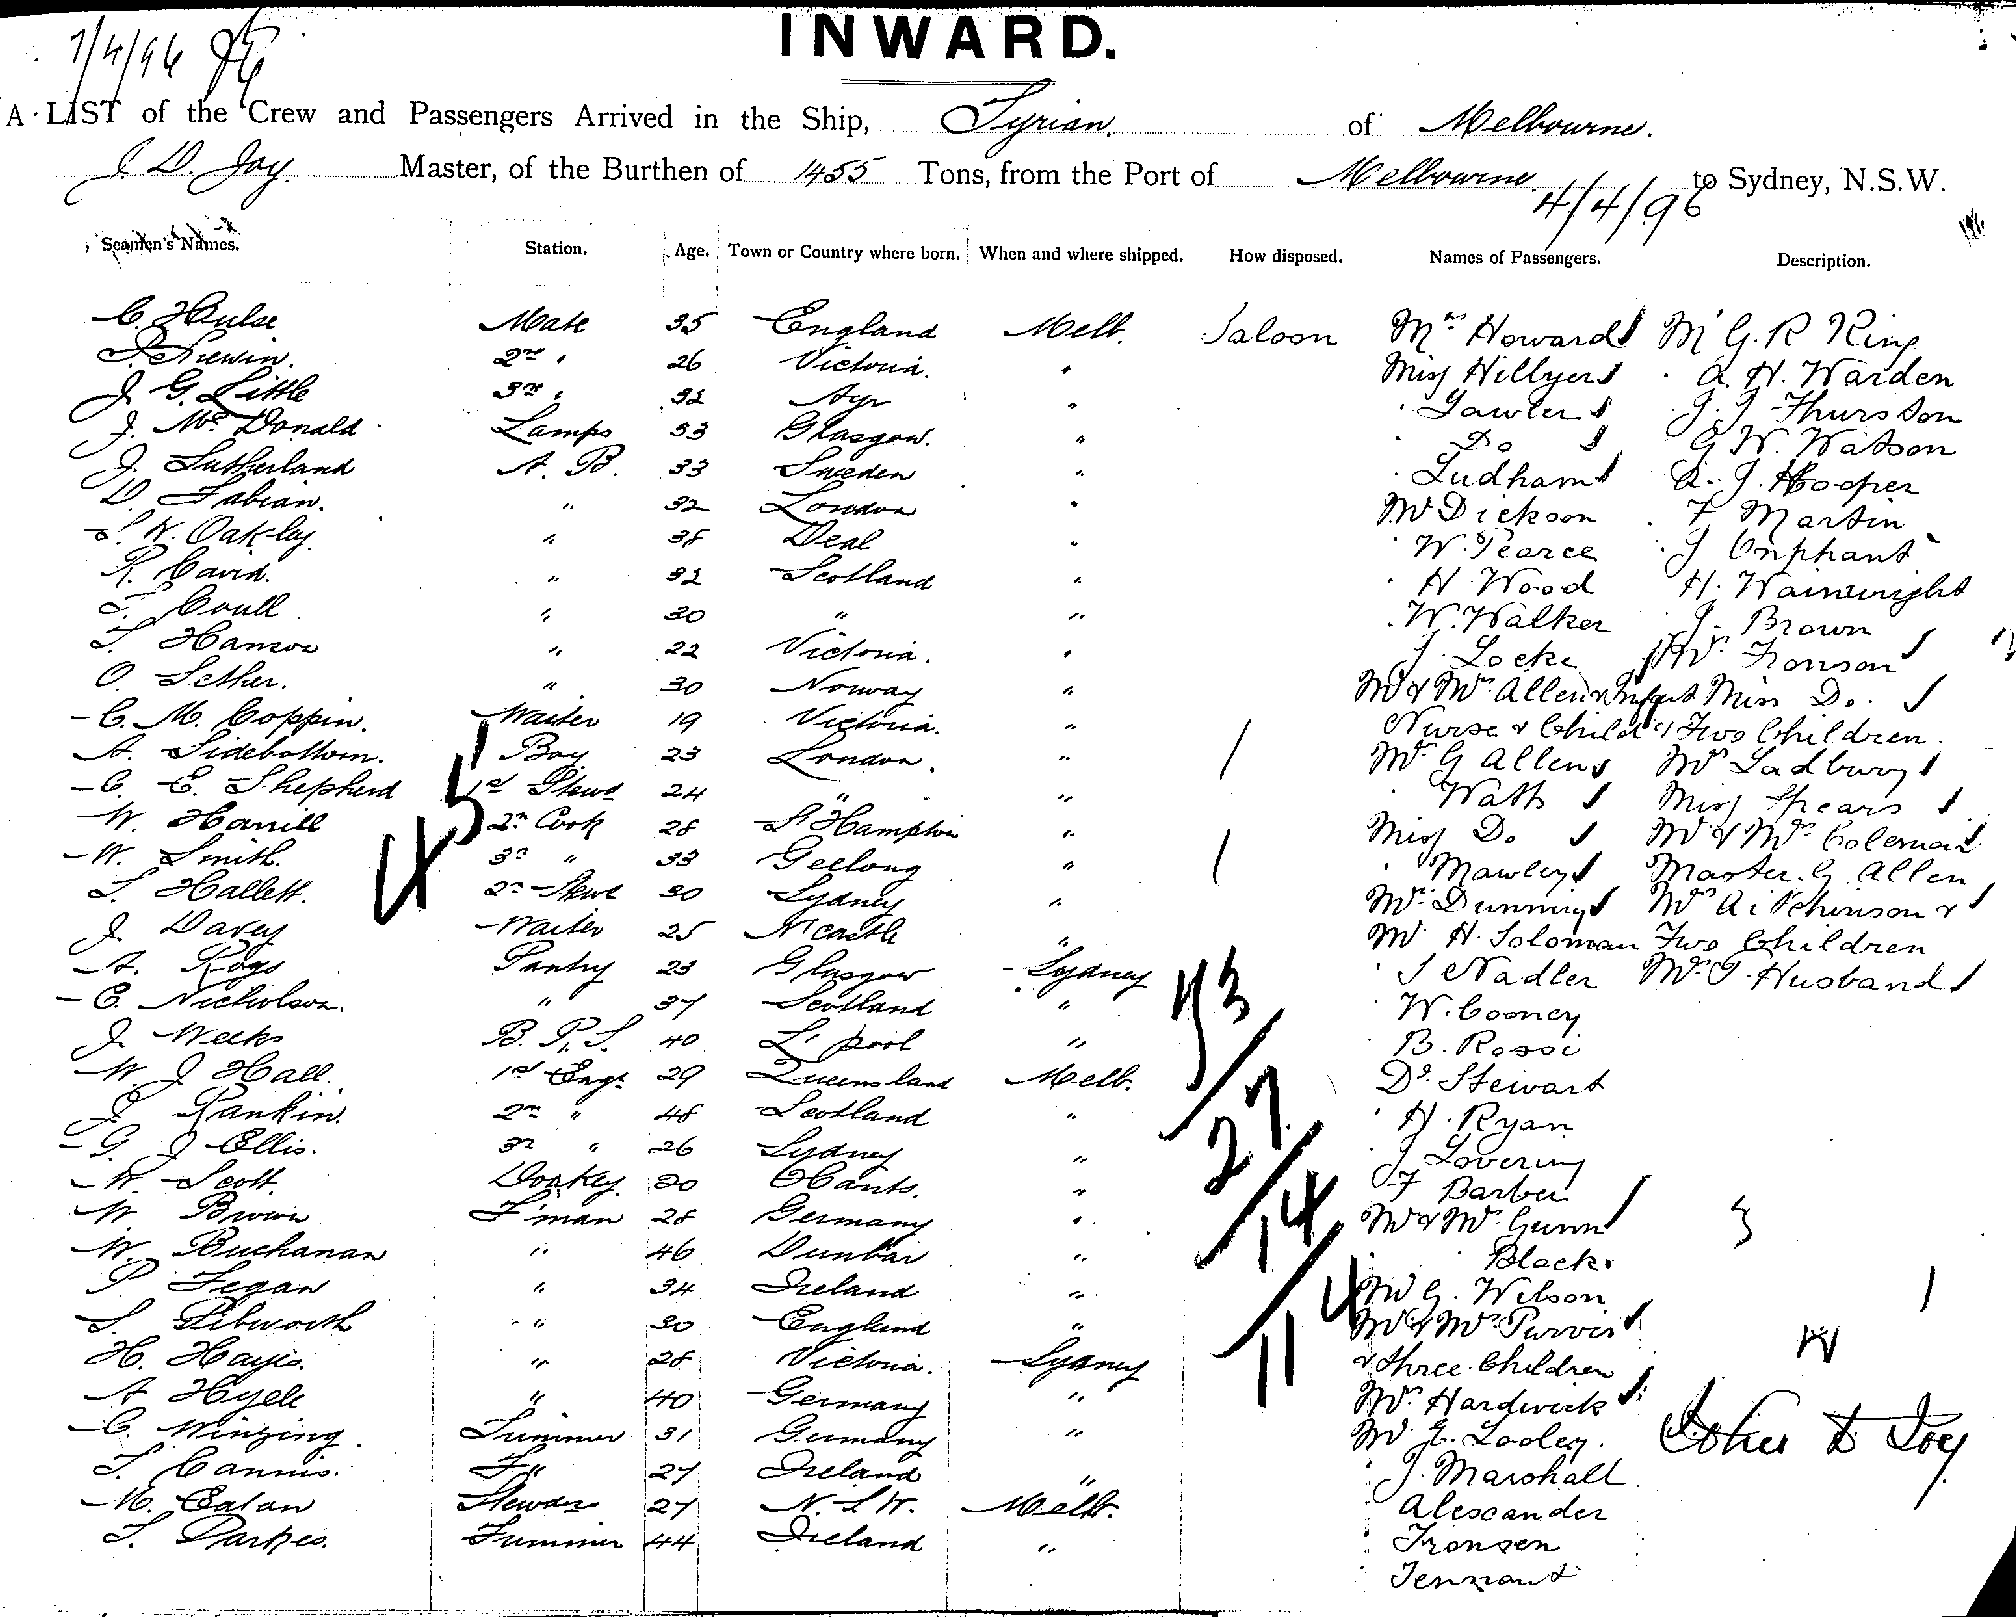 7/4/96
INWARD.
A LIST of the Crew and Passengers Arrived in the Ship, Syrian. of Melbourne.
J. D. Joy. Master, of the Burthen of 1455 Tons, from the Port of Melbourne to Sydney, N.S.W.
4/4/96
Seamen's Names. Station. Age. Town or Country where born. When and where shipped. How disposed. Names of Passengers. Description.
C. Hulse Mate 35 England Melb. Saloon Mrs Howard Mr G. R King
26 Victoria. " Miss Hillyer " A. H. Warden
J. G. Little 3rd " 32 Ayr " " Lawler " J. J. Thurston
J. McDonald Lamps 53 Glasgow. " " Do G W. Watson
J. Sutherland A. B. 33 Sweden " " Ludham A. J. Hooper
D. Fabian. " 32 London " Mr Dickson " F Martin
W. Oakley. " 38 Deal " " W. Pearce " J Oliphant
R. David. " 32 Scotland " " H Wood H. Wainwright
T. Coull " 30 " " " W. Walker J. Brown
22 Victoria. " J. Locke Mrs Fronson
O. Sether. " 30 Norway " Mr & Mrs Allen & Infant Miss Do.
C. M. Coppin. Waiter 19 Victoria. " Nurse & Child & Two Children.
A. Sidebottom. Boy 23 London. " Mrs G Allen Mrs Ladbury
C. E. Shepherd 1st Stewd 24 " " " Watts Miss Spears
W. Hanill 2nd Cook 28 S'Hampton " Miss Do Mr & Mrs Coleman
W. Smith. 3rd " 33 Geelong " " Mawley Master. G. Allen
T. Hallett. 2nd Stewd 30 Sydney " Mrs Dunning Mrs Aitchinson &
J. Davey Waiter 25 N'castle " Mr H. Soloman Two Children
A. Pantry 23 Glasgow Sydney " S Nadler Mrs J. Husband
E. Nicholson. " 37 Scotland " W. Cooney
J. Weeks B. P. S. 40 L'pool " " B. Rossi
W. J Hall. 1st Engr 29 Queensland Melb. Dr. Stewart
J Rankin. 2nd " 48 Scotland " " H. Ryan
G. J Ellis. 3rd " 26 Sydney " J Lovering
W. Scott. Donkey. 30 Hants. " F Barber
W Brown F'man 28 Germany " Mr & Mrs Gunn
W. Buchanan " 46 Dunbar " Black
P Fegan " 34 Ireland " Mr G. Wilson
S. Pilworth " 30 England " Mr & Mrs Purvis
H. Hayes. " 28 Victoria. Sydney & three Children
A " 40 Germany " Mrs Hardwick
C. Winzing. Trimmer 31 Germany " Mr E. Looley.
T. Cannis. F" 27 Ireland " J. Marshall
M. Eagan Steward 27 N. S. W. Melb. " Alexander
T. Parkes. Trimmer 44 Ireland " " Fronsen
" Tennant
45
73
27
14
114
John D Joy